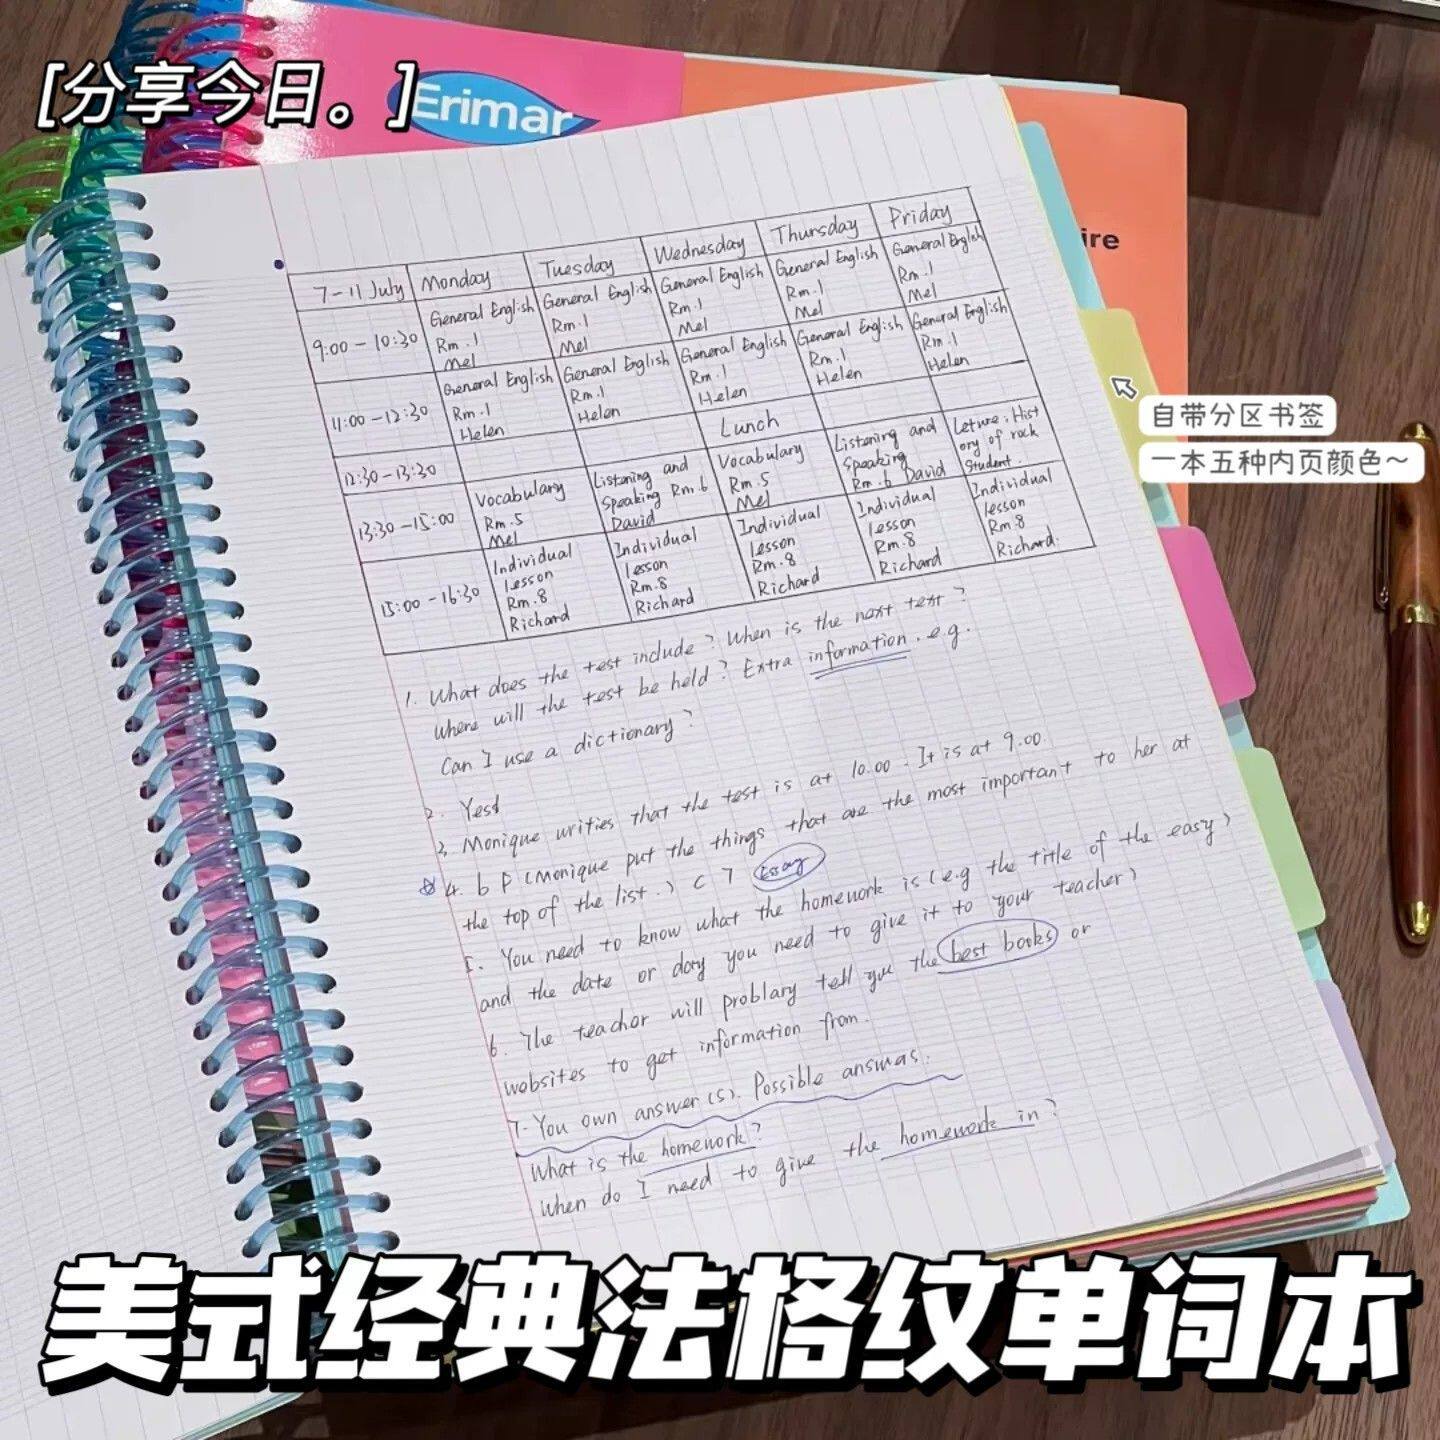 [分享今日。]
Erimar
ire
自带分区书签
一本五种内页颜色~
7-11 July Monday Tuesday Wednesday Thursday Priday
9:00-10:30 General English Rm.1 Mel General English Rm.1 Mel General English Rm.1 Mel General English Rm.1 Mel General English Rm.1 Mel
11:00-12:30 General English Rm.1 Helen General English Rm.1 Helen General English Rm.1 Helen General English Rm.1 Helen General English Rm.1 Helen
12:30-13:30 Lunch
13:30-15:00 Vocabulary Rm.5 Mel Listening and Speaking Rm.6 David Vocabulary Rm.5 Mel Listening and Speaking Rm.6 David Leture:Hist ory of rock Student.
15:00-16:30 Individual lesson Rm.8 Richard Individual lesson Rm.8 Richard Individual lesson Rm.8 Richard Individual lesson Rm.8 Richard Individual lesson Rm.8 Richard.
1. What does the test include? When is the next test?
Where will the test be held? Extra information. e.g.
Can I use a dictionary?
2. Yest
3. Monique writies that the test is at 10.00. It is at 9.00.
4. b F (Monique put the things that are the most important to her at
the top of the list.) C 7 Essay
5. You need to know what the homework is (e.g the title of the easy)
and the date or day you need to give it to your teacher)
6. The teachor will problary tell you the best books or
websites to get information from.
7. You own answer(s). Possible answas.
What is the homework?
When do I need to give the homework in?
美式经典法格纹单词本